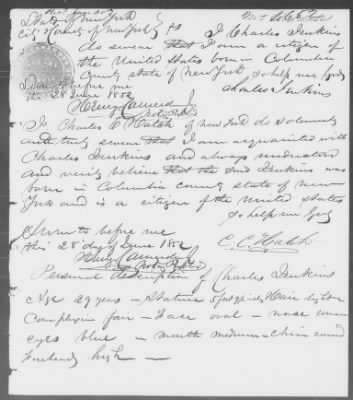 State of New York
City & County of New York } SS I Charles Jenkins
do swear that I am a citizen of
the United States born in Columbia
County state of New York So help me God
Sworn to before me
this 28 June 1852
Charles Jenkins
Notr Public
I Charles C Hatch of New York do solemnly
and truly swear that I am acquainted with
Charles Jenkins and always understood
and verily believe that the said Jenkins was
born in Columbia county state of New
York and is a citizen of the United States
So help me God
Sworn to before me
this 28 day of June 1852
C. C. Hatch
Notr Public
Personal description of Charles Jenkins
Age 29 years – Stature 5 feet Hair
Complexion fair – Face oval – nose
eyes blue – mouth medium – chin round
Forehead high –